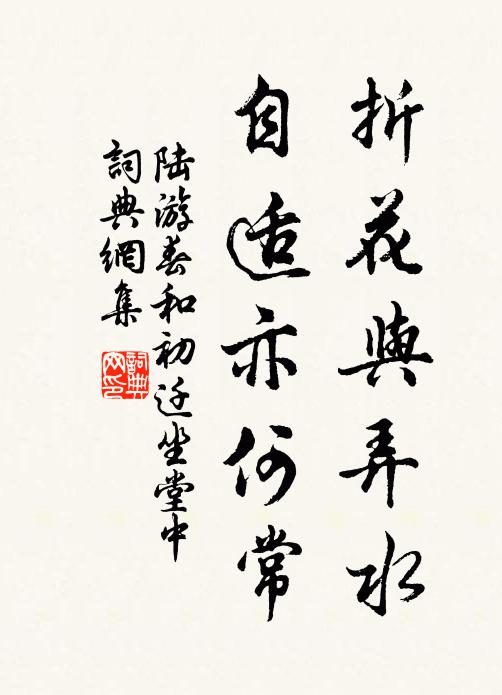 折花與弄水
自适亦何常
陆游春和初迁坐堂中
詞典網集
詞典
网印